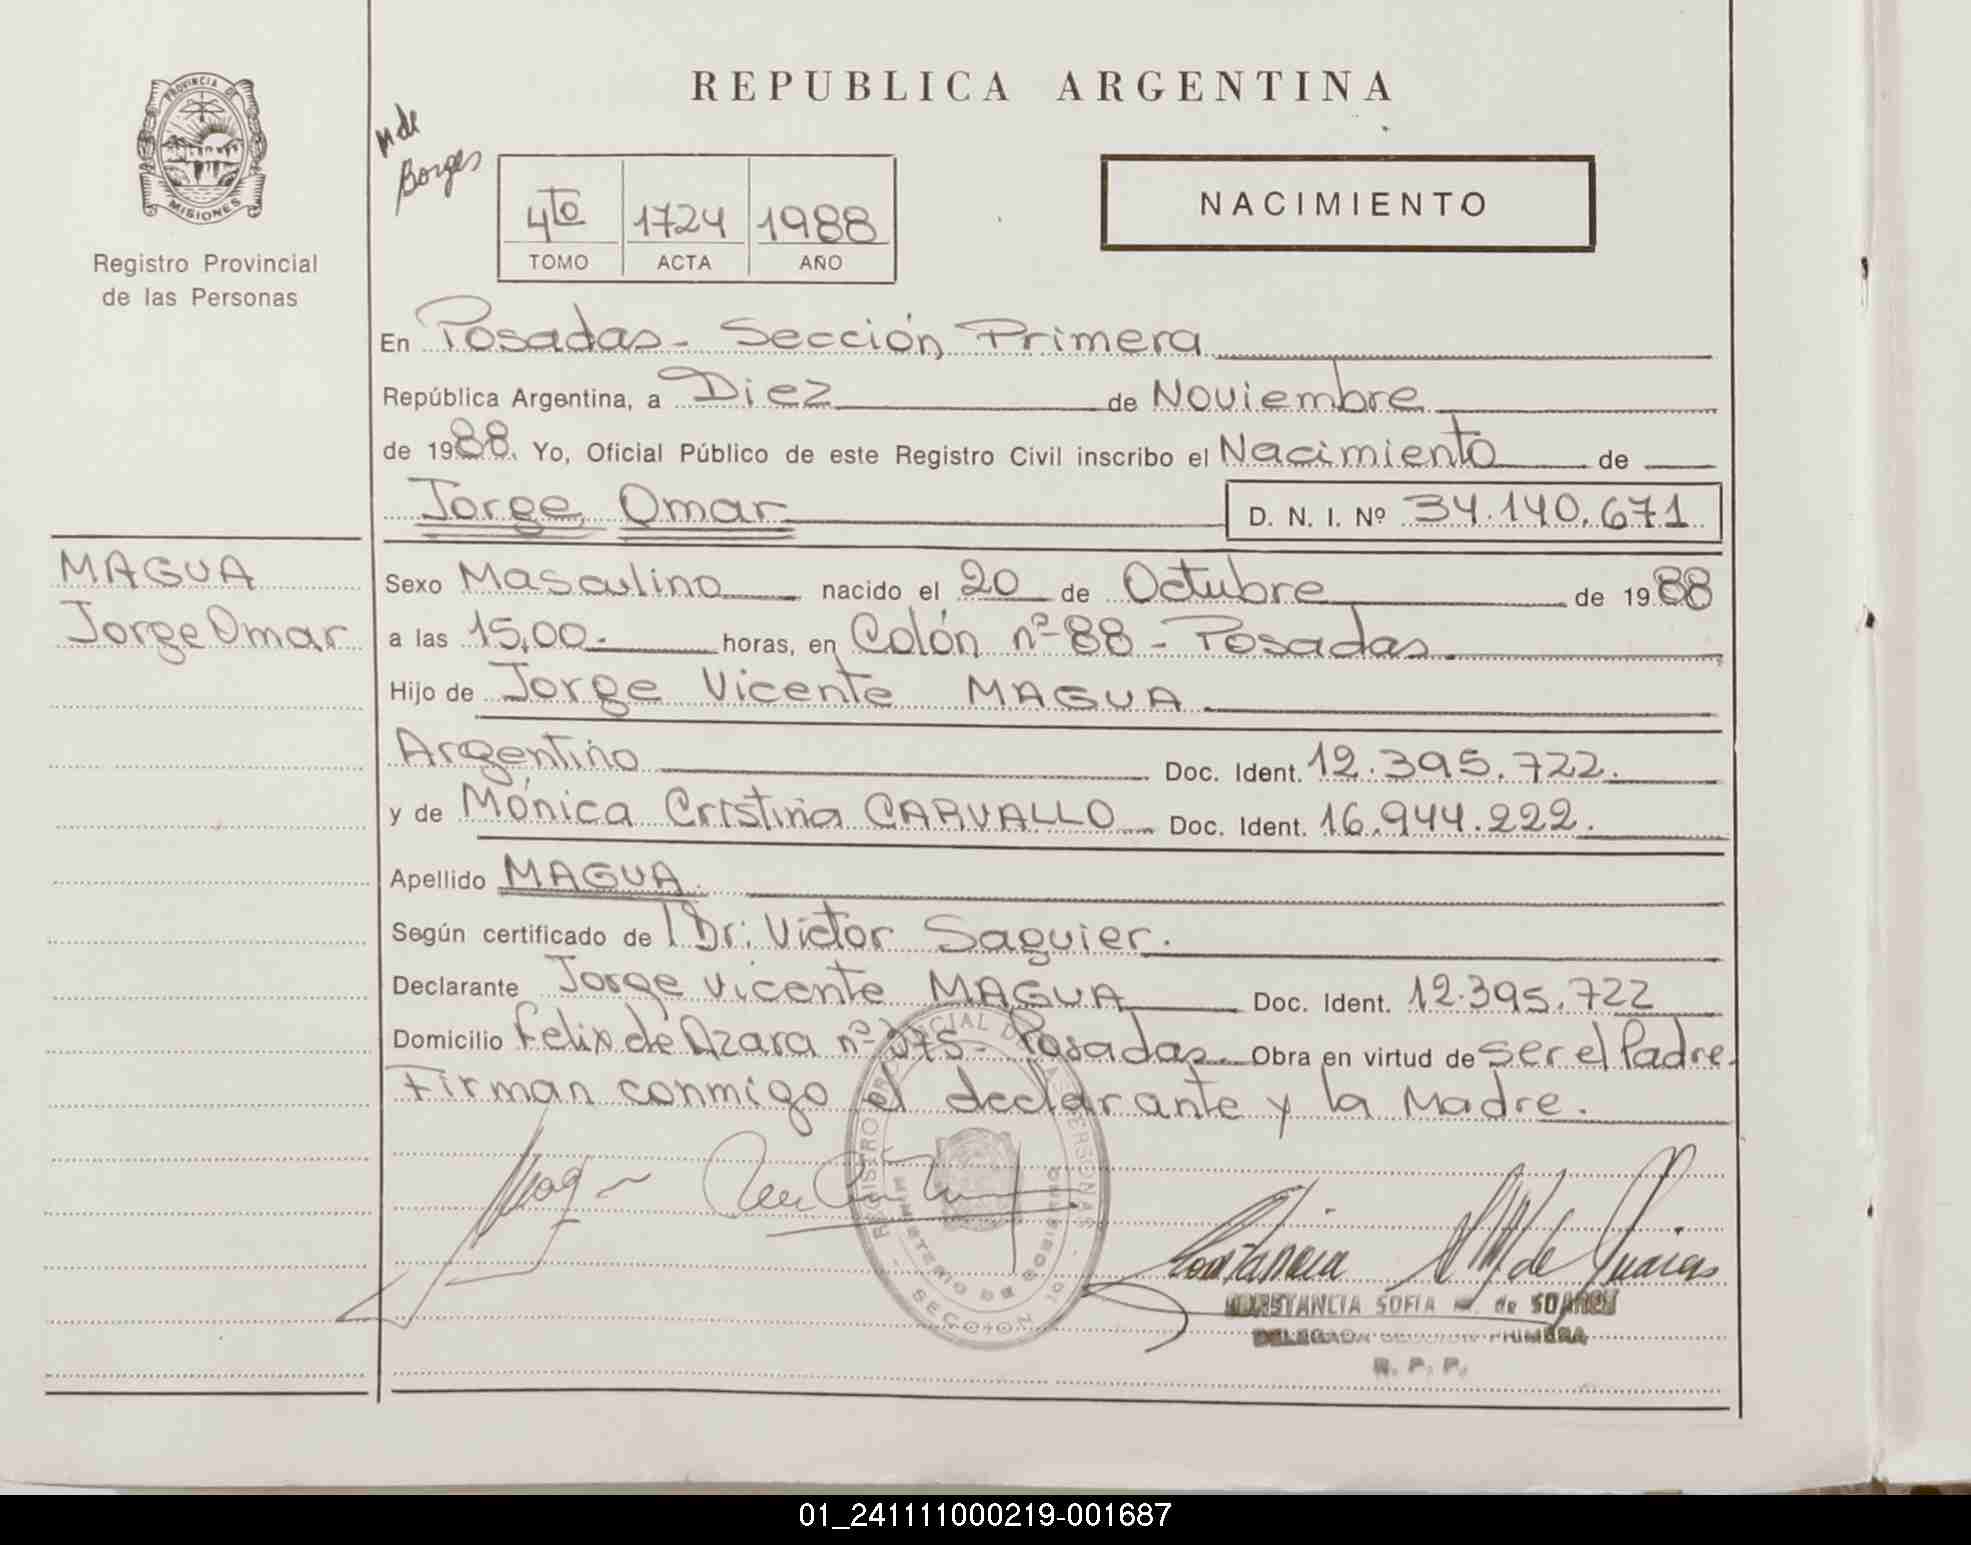 REPUBLICA ARGENTINA
PROVINCIA DE
MISIONES
Registro Provincial
de las Personas
M de
Borges
4to 1724 1988
TOMO ACTA AÑO
NACIMIENTO
En Posadas - Sección Primera
República Argentina, a Diez de Noviembre
de 1988. Yo, Oficial Público de este Registro Civil inscribo el Nacimiento de
Jorge Omar D. N. I. Nº 34.140.671
MAGUA
Jorge Omar
Sexo Masculino nacido el 20 de Octubre de 1988
a las 15,00.- horas, en Colón nº 88 - Posadas.
Hijo de Jorge Vicente MAGUA
Argentino Doc. Ident. 12.395.722.
y de Mónica Cristina CARVALLO Doc. Ident. 16.944.222.
Apellido MAGUA.
Según certificado de Dr: Victor Saguier.
Declarante Jorge Vicente MAGUA Doc. Ident. 12.395.722
Domicilio Felix de Azara nº - Posadas. Obra en virtud de ser el Padre.
Firman conmigo el declarante y la Madre.
REGISTRO PROVINCIAL DE LAS PERSONAS
MINISTERIO DE GOBIERNO
SECCION 1º
CONSTANCIA SOFIA M. de
DELEGADA SECCION PRIMERA
R. P. P.
01_241111000219-001687